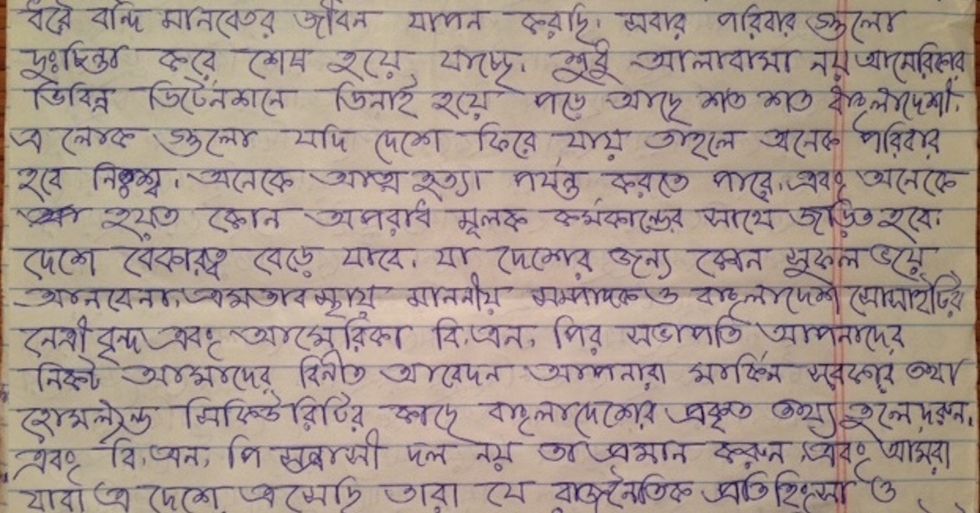 ধরে বন্দি মানবেতর জীবন যাপন করছি। সবার পরিবার গুলো
দুঃচিন্তা করে শেষ হয়ে যাচ্ছে। শুধু আলাবামা নয় আমেরিকার
বিভিন্ন ডিটেনশনে ডিনাই হয়ে পড়ে আছে শত শত বাংলাদেশী।
এ লোক গুলো যদি দেশে ফিরে যায় তাহলে অনেক পরিবার
হবে নিঃশ্ব। অনেকে আত্ম হত্যা পর্যন্ত করতে পারে। এবং অনেকে
হয়ত কোন অপরাধ মূলক কর্মকান্ডের সাথে জড়িত হবে।
দেশে বেকারত্ব বেড়ে যাবে। যা দেশের জন্য কোন সুফল বয়ে
আনবেনা। এমতাবস্থায় মাননীয় সম্পাদক ও বাংলাদেশ সোসাইটির
নেত্রী বৃন্দ এবং আমেরিকা বি,এন, পির সভাপতি আপনাদের
নিকট আমাদের বিনীত আবেদন আপনারা মার্কিন সরকার তথা
হোমল্যান্ড সিকিউরিটির কাছে বাংলাদেশের প্রকৃত তথ্য তুলে ধরুন,
এবং বি,এন, পি সন্ত্রাসী দল নয় তা প্রমান করুন, এবং আমরা
যারা এ দেশে এসেছি তারা যে রাজনৈতিক প্রতিহিংসা ও